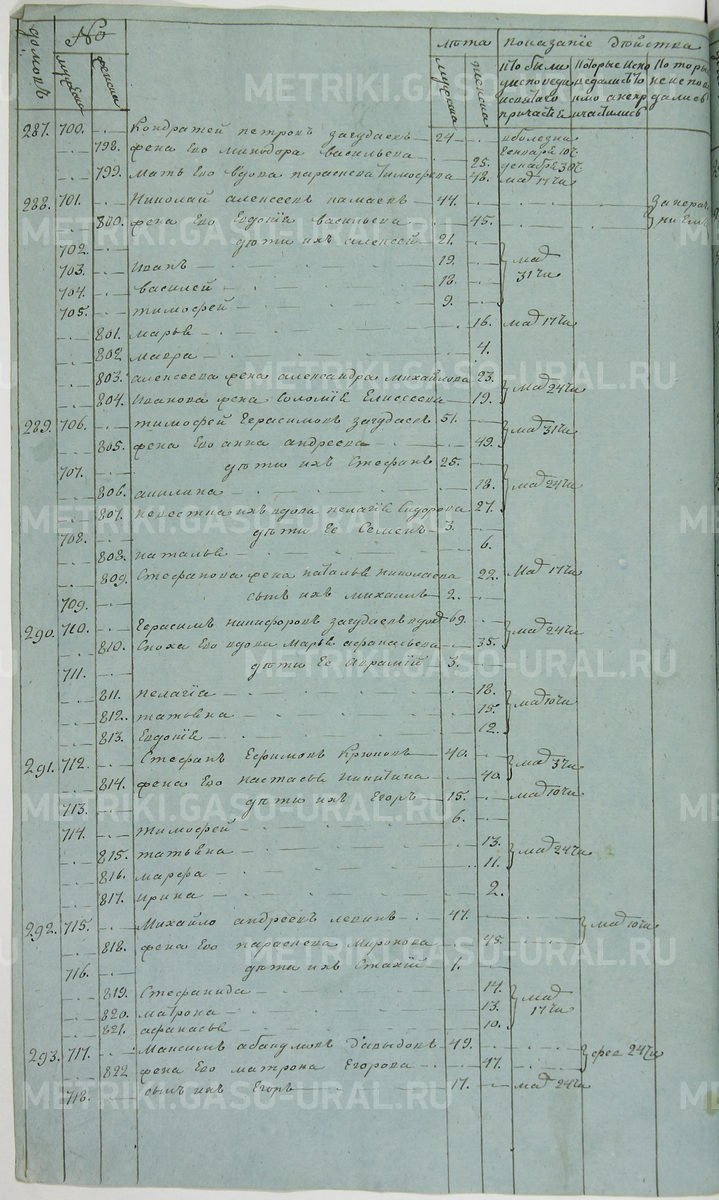 домовъ № лѣта показанiе дѣйства
мужеска женска мужеска женска
287. 700. Кондратей петровъ загудаевъ 24
798. жена Его минодора васильева 25.
799. мать Его вдова параскева тимофеева 48. мар 17 чи
288. 701. Николай алексеевъ 44.
800. жена Его Евдокiя васильева 45.
702. дѣти ихъ алексей 21.
703. Иванъ 19. мар 31 чи
704. василей 18.
705. тимофей 9.
801. марья 16. мар 17 чи
802 мавра 4.
803. алексеева жена александра михайлова 23. мар 24 чи
804. Иванова жена соломiя Елисеева 19.
289. 706. тимофей Герасимовъ загудаевъ 51. мар 31 чи
805. жена Его анна андреева 49.
707. дѣти ихъ Стефанъ 25.
806. акилина 18. мар 24 чи
807. невестка ихъ вдова пелагiя Сидорова 27.
708. дѣти Ее Семенъ 3.
808. наталья 6.
809. Стефанова жена наталья николаева 22. мар 17 чи
709. сынъ ихъ михаилъ 2.
290. 710. Герасимъ никифоровъ загудаевъ вдов 69. мар 24 чи
810. Сноха Его вдова Марья афанасьева 35.
711. дѣти Ее Аврамiй 3.
811. пелагiа 18.
812. татьяна 15. мар 10 чи
813. Евдокiя 12.
291. 712. Стефанъ Ефимовъ Крюковъ 40. мар 3 чи
814. жена Его настасья никитина 40.
713. дѣти ихъ Егоръ 15. мар 10 чи
714. тимофей 6.
815. татьяна 13. мар 24 чи
816. марфа 11.
817. ирина 2.
292. 715. Михайло андреевъ левинъ 47. мар 10 чи
818. жена Его параскева Миронова 45.
716. дѣти ихъ Стахiй 1.
819. Стефанида 14. мар 17 чи
820. матрона 13.
821. афанасья 10.
293. 717. Максимъ давыдовъ 49. фев 24 чи
822 жена Его матрона Егорова 47.
718. сынъ ихъ Егоръ 17. мар 24 чи
METRIKI.GASU-URAL.RU